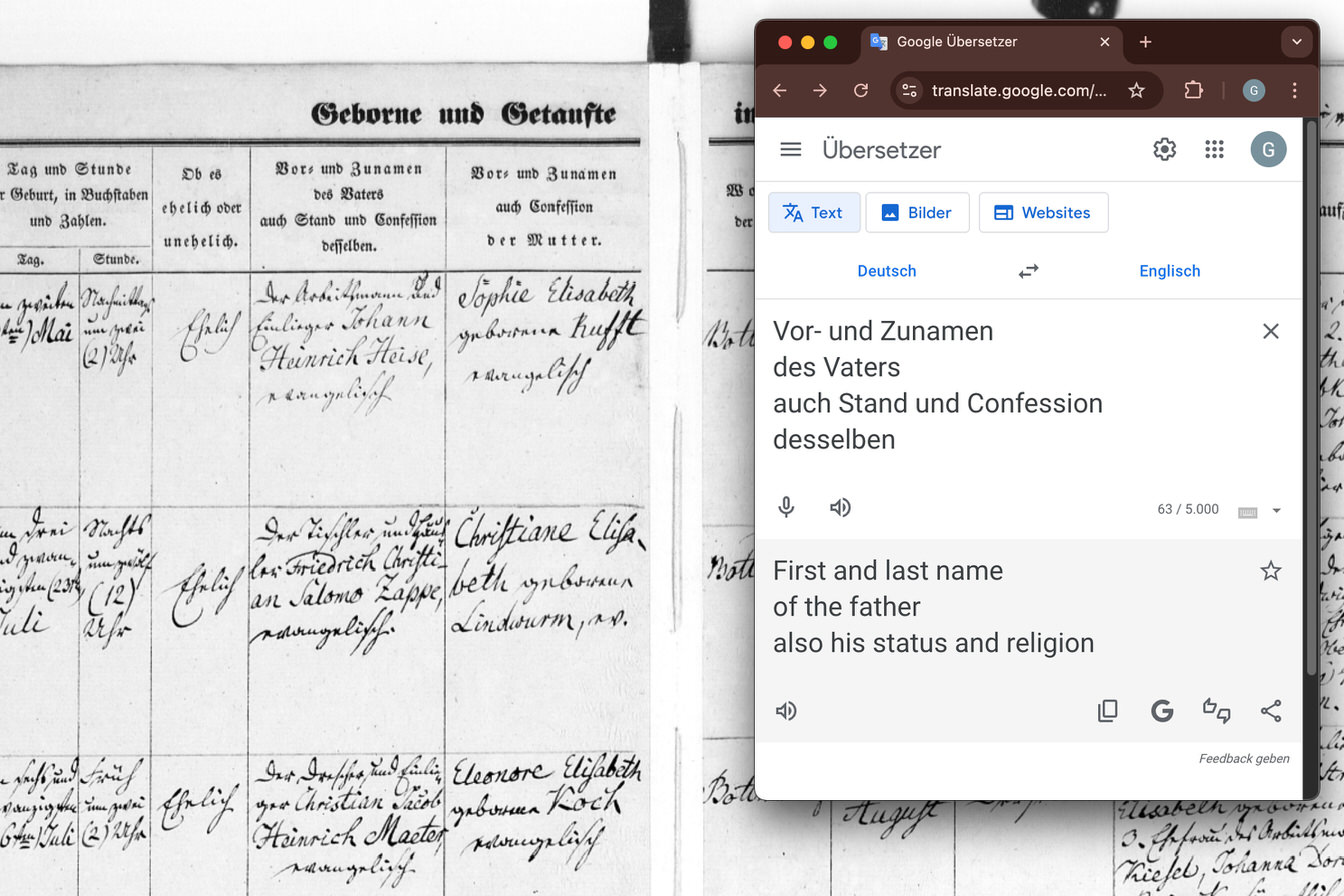 Geborne und Getaufte
in
Tag und Stunde
r Geburt, in Buchstaben
und Zahlen.
Tag.
Stunde.
Ob es
ehelich oder
unehelich.
Vor- und Zunamen
des Vaters
auch Stand und Confession
desselben.
Vor- und Zunamen
auch Confession
der Mutter.
W
der
n zweiten
Mai
Nachmittags
um zwei
(2) Uhr
Ehelich
Der Arbeitsmann und
Einlieger Johann
Heinrich Heise,
evangelisch
Sophie Elisabeth
geborene Kufft
evangelisch
Bott
m drei
Juli
Nachts
um zwölf
(12)
Uhr
Ehelich
Der Tischler und
ler Friedrich Christi-
an Salomo Zappe,
evangelisch.
Christiane Elisa-
beth geborene
Lindwurm, ev.
Bott
sechs und
Juli
Früh
um zwei
(2) Uhr
Ehelich
Der Drescher und Einlie-
ger Christian Jacob
Heinrich Maeter,
evangelisch
Eleonore Elisabeth
geborene Koch
evangelisch
Bott
August
Elisabeth geborene
3. Ehefrau des Arbeitsm
Kiesel, Johanna Dor
Google Übersetzer
translate.google.com/...
G
Übersetzer
G
Text
Bilder
Websites
Deutsch
Englisch
Vor- und Zunamen
des Vaters
auch Stand und Confession
desselben
63 / 5.000
First and last name
of the father
also his status and religion
Feedback geben